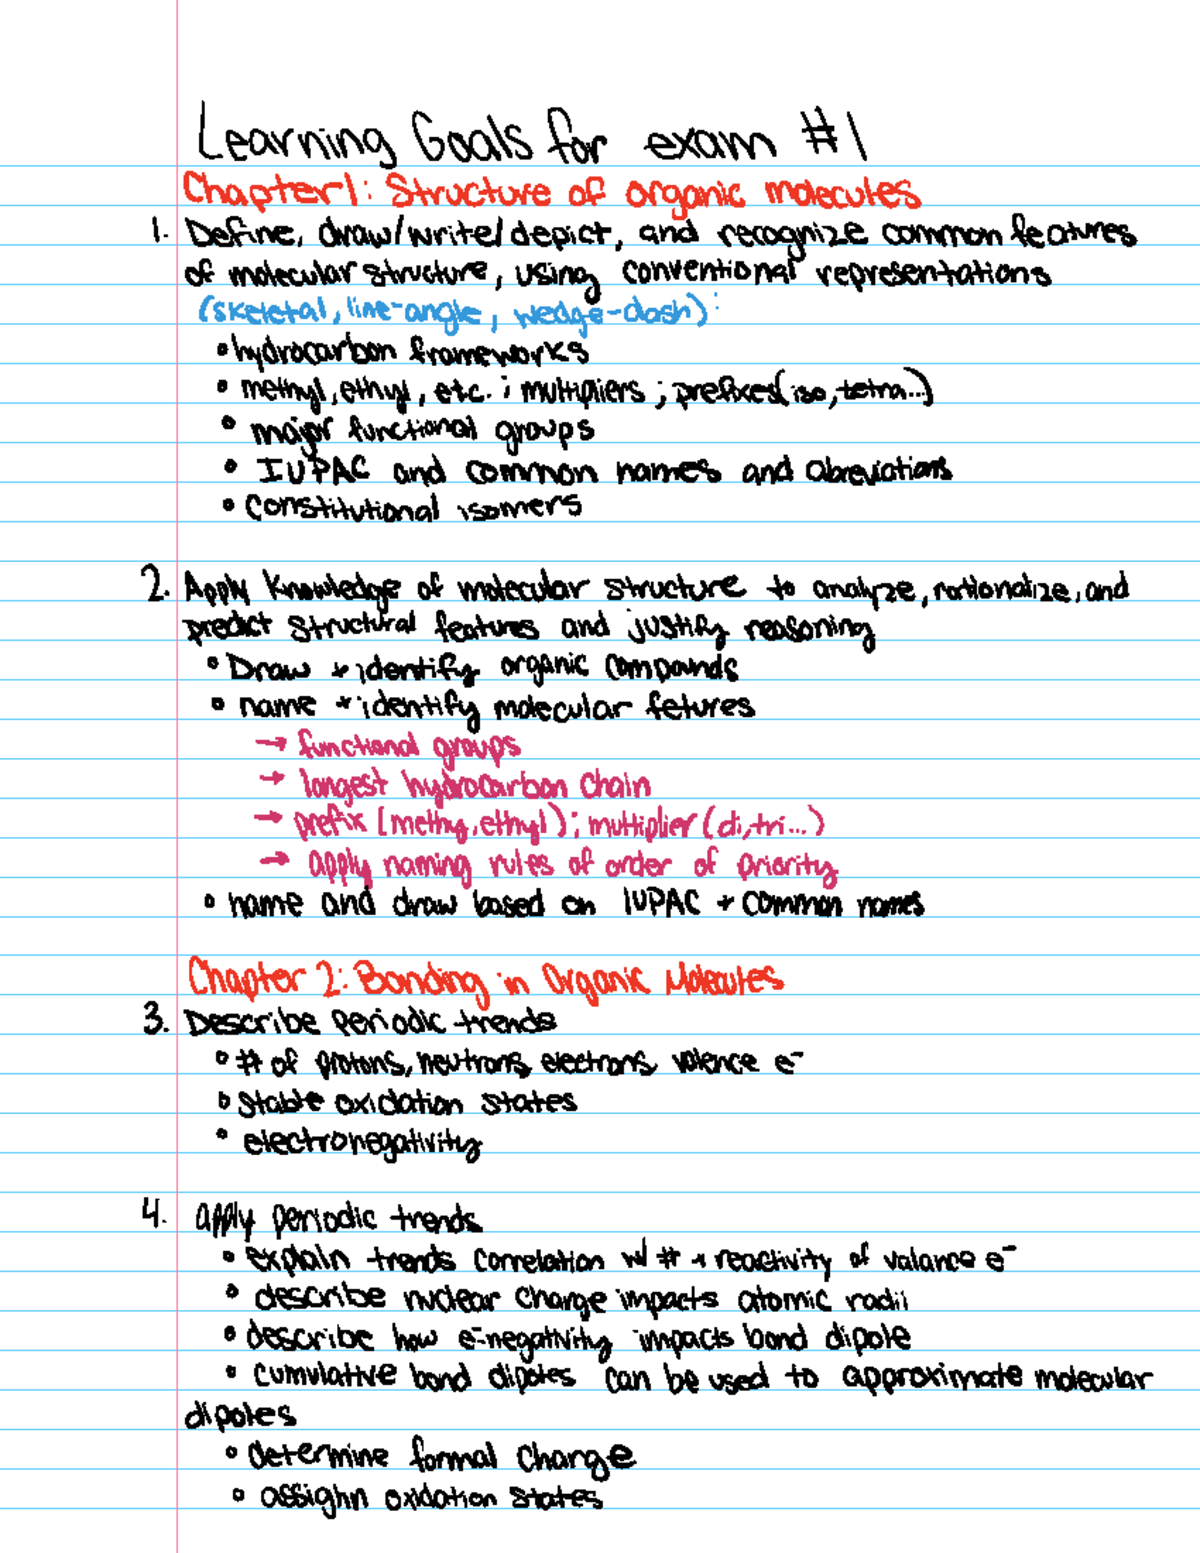 Learning Goals for exam #1
Chapter 1: Structure of organic molecules
1. Define, draw/write/depict, and recognize common features
of molecular structure, using conventional representations
(skeletal, line-angle, wedge-dash):
• hydrocarbon frameworks
• methyl, ethyl, etc. ; multipliers ; prefixes (iso, tetra...)
• major functional groups
• IUPAC and common names and abreviations
• constitutional isomers
2. Apply knowledge of molecular structure to analyze, rationalize, and
predict structural features and justify reasoning
• Draw + identify organic compounds
• name + identify molecular fetures
→ functional groups
→ longest hydrocarbon chain
→ prefix (methy, ethyl); multiplier (di, tri...)
→ apply naming rules of order of priority
• name and draw based on IUPAC + common names
Chapter 2: Bonding in Organic Molecules
3. Describe periodic trends
• # of protons, neutrons, electrons, valence e⁻
• stable oxidation states
• electronegativity
4. apply periodic trends
• explain trends correlation w/ # + reactivity of valance e⁻
• describe nuclear charge impacts atomic radii
• describe how e⁻negativity impacts bond dipole
• cumulative bond dipoles can be used to approximate molecular
dipoles
• determine formal charge
• assighn oxidation states